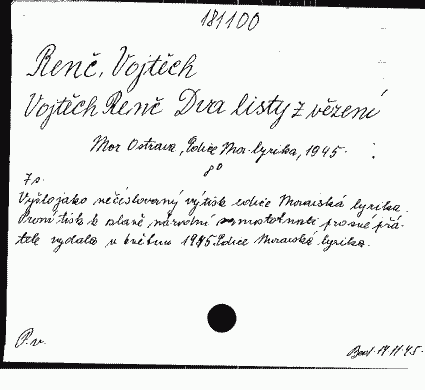 181100
Renč, Vojtěch
Vojtěch Renč Dva listy z vězení
Mor Ostrava, Edice Mor. lyrika, 1945.
8°
7 s.
Vyšlo jako nečíslovaný výtisk edice Moravská lyrika.
První tisk k slavě národní samostatnosti pro své přá-
tele vydala v květnu 1945 Edice Moravská lyrika.
P. v.
14 11 45.